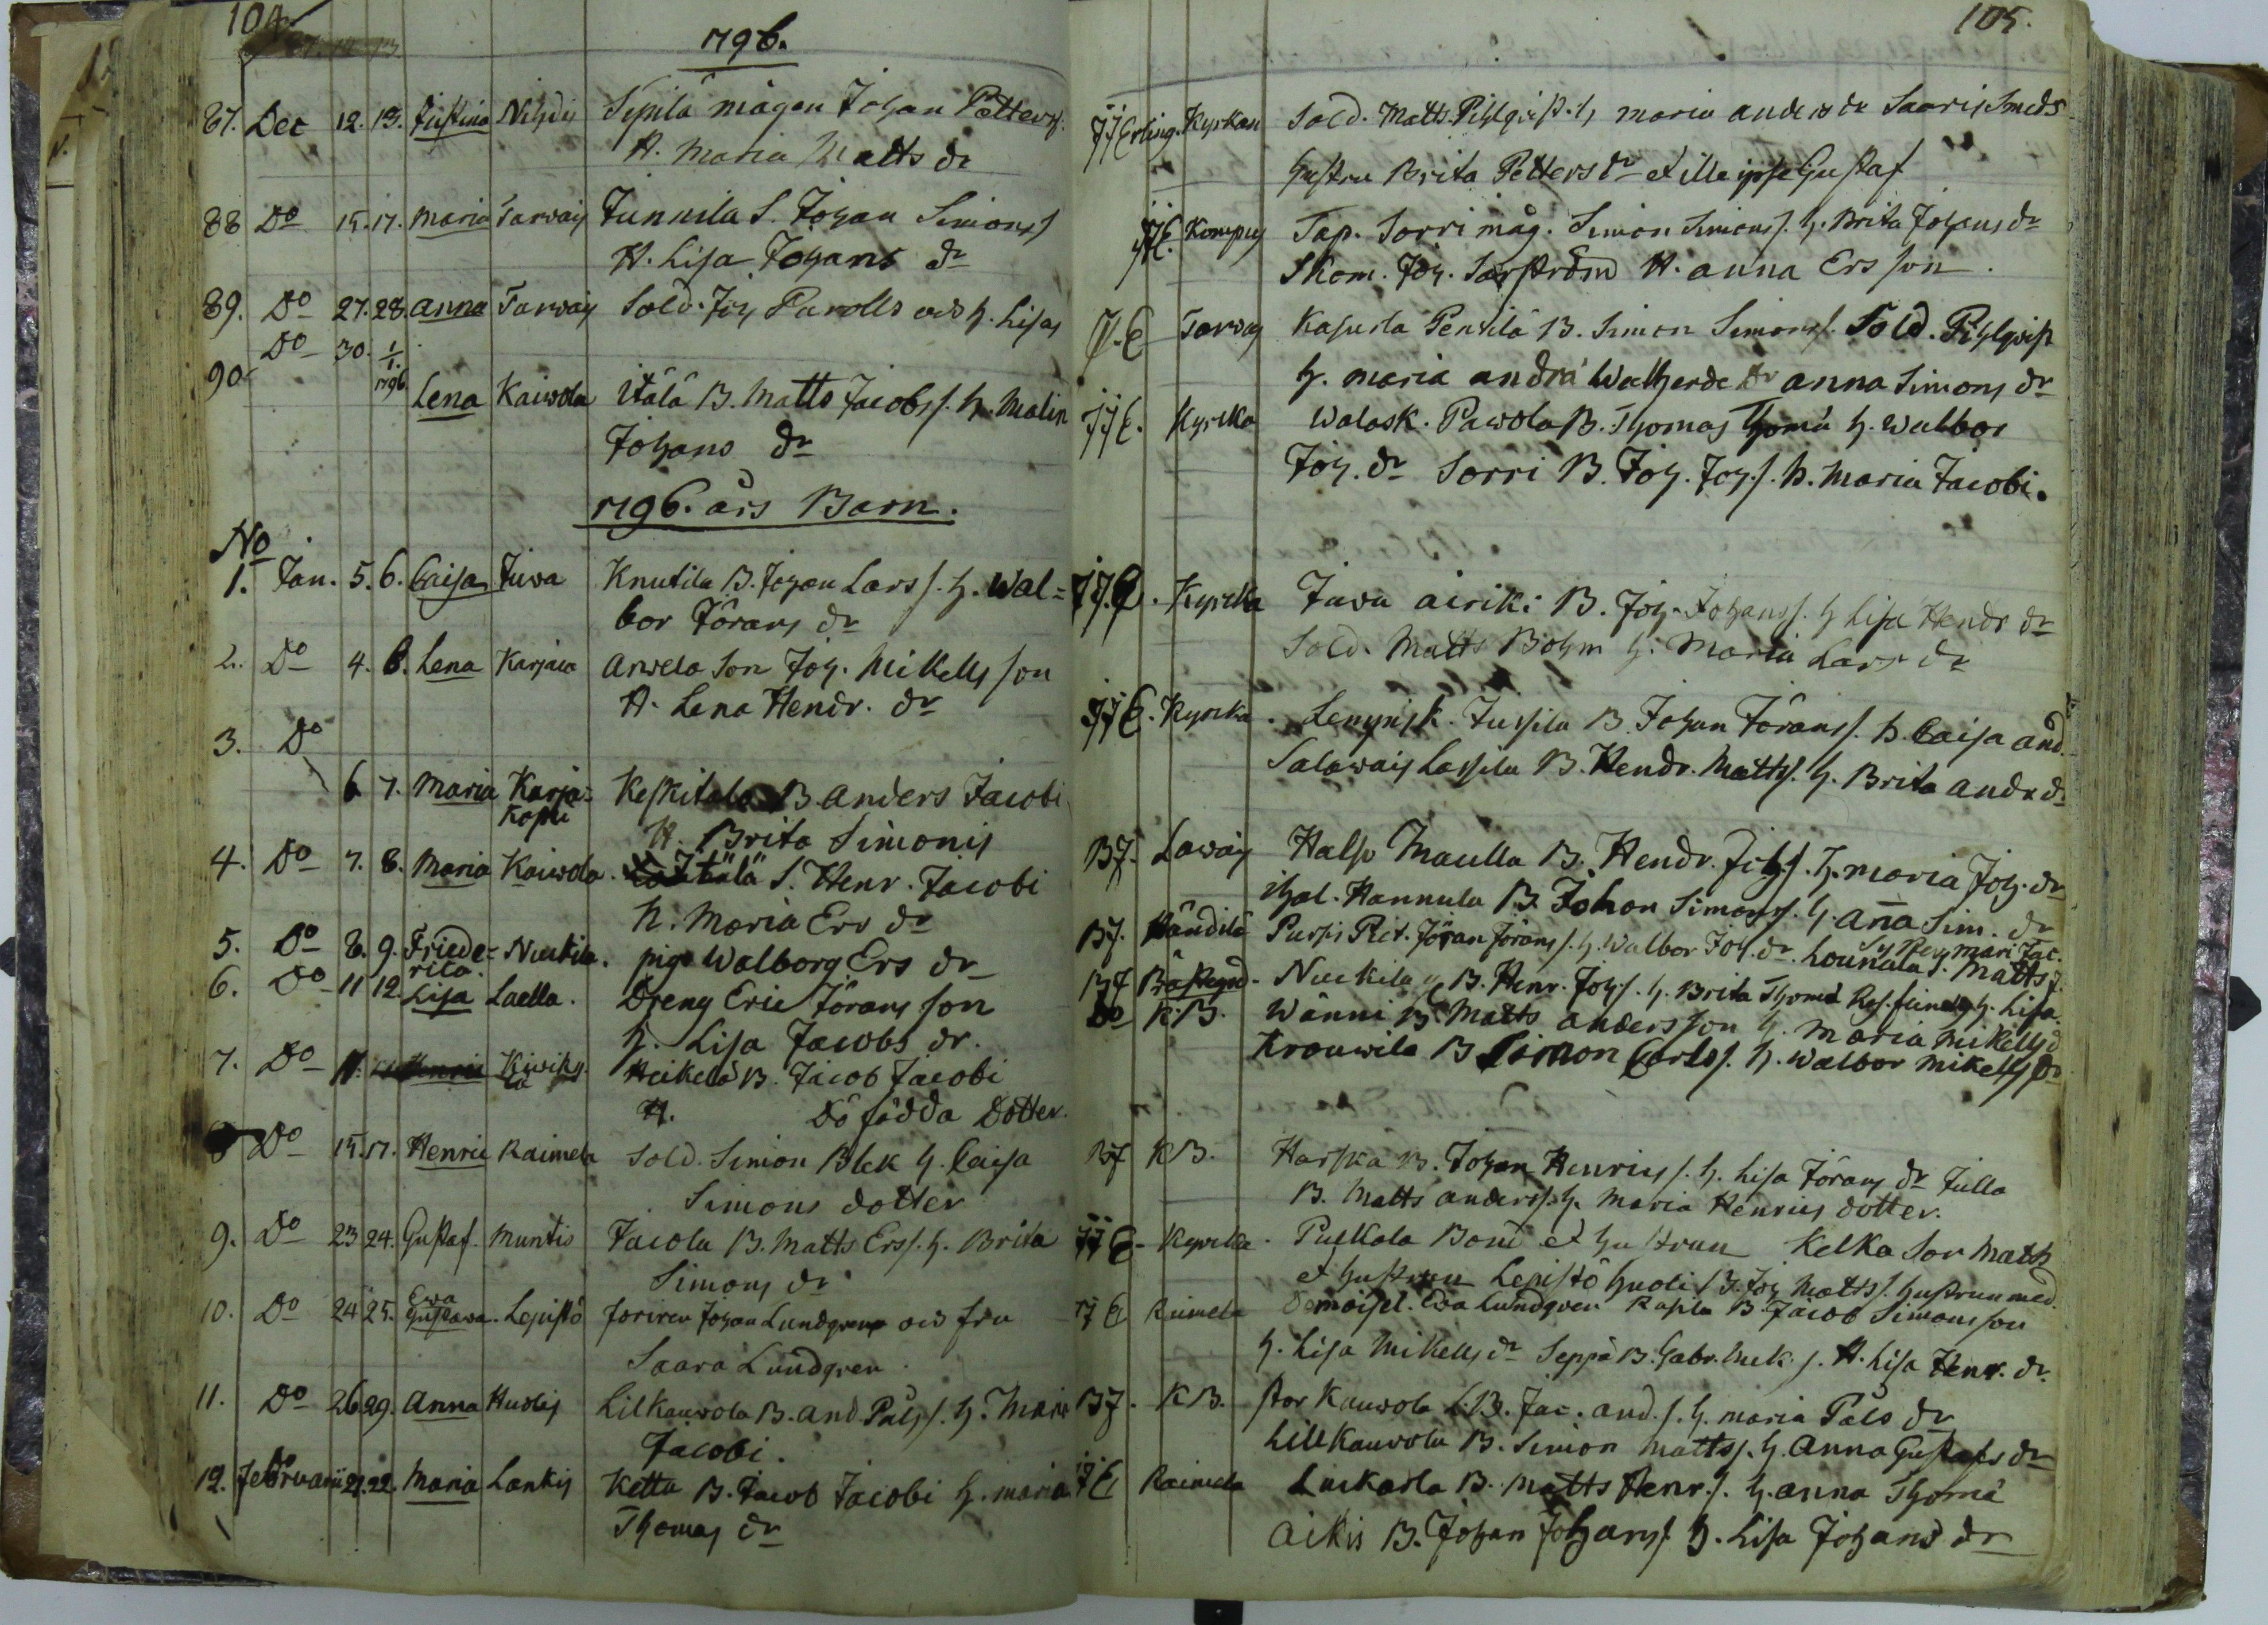 104.
1796.
87. Dec 12. 13. Justina Nihdis Sepilä mågen Johan Petters.
H. Maria Matts dr
88 Do 15. 17. Maria Tarvais Junnila S. Johan Simons
H. Lisa Johans dr
89. Do 27. 28. Anna Tarvais Sold. Joh Parolls och h. Lisas
90. Do 30. 1/1. 1796. Lena Kaivola Itälä B. Matts Jacobs s. h. Malin
Johans dr
1796. års Barn.
No
1. Jan. 5. 6. Caisa Juva Knutila B. Johan Lars s. h. Wal=
bor Jörans dr
2. Do 4. 6. Lena Karjala Arvela Son Joh. Mikells son
H. Lena Hendr. dr
3. Do
6 7. Maria Karja= Keskitalo B. Anders Jacobi
H. Brita Simonis
4. Do 7. 8. Maria Kaivola. Itälä S. Henr. Jacobi
h. Maria Ers dr
5. Do 8. 9. Friede= Nuckila. piga Walborg Ers dr
rica.
6. Do 11 12 Lisa Laella. Dreng Eric Jörans son
h. Lisa Jacobs dr.
7. Do 11. Heikelä B. Jacob Jacobi
H. Dö födda Dotter.
8 Do 15. 17. Henric Raimela Sold. Simon Blek h. Caisa
Simons dotter
9. Do 23 24. Gustaf. Muntis Jacola B. Matts Ers s. h. Brita
Simons dr
10. Do 24 25. Ewa Gustava. Lepistö Johan Lundgren och fru
Saara Lundgren.
11. Do 26 29. Anna Hudis Lilkauvola B. And Påls s. h. Maria
Jacobi.
12. Februarii 21. 22. Maria Lankis Kettu B. Jacob Jacobi h. Maria
Thomas dr
105.
Kyrkan Sold. Matts Pihlqvist. h Maria Anders dr Saaris Smeds
hustru Brita Petters dr et ille ipse Gustaf
JJE. Tap. Sorri måg. Simon Simons s. h. Brita Johans dr
Skom. Joh. Sarström H. Anna Ers son.
Tarvas Penttilä B. Simon Simons s. Sold. Pihlqvist
h. Maria Andrä Anna Simons dr
JJE. Kyrcka Walask. Pavola B. Thomas Thomä h. Walbor
Joh. dr Sorri B. Joh. Joh. s. h. Maria Jacobi.
JJE. Kyrcka Juva Airiki B. Joh. Johans s. h Lisa Hendr dr
Sold. Matts Bohm h. Maria Lars dr
JJE. Kyrcka. Jussila B. Johan Jörans s. h. Caisa And.
Salavais Lassila B. Hendr. Matts s. h. Brita Andr dr
BJ. Lavais Halso Maulla B. Hendr. s. h. Maria Joh. dr
Hannula B. Johan Simons s. h. Anna Sim. dr
BJ. Händilä Jöran Jörans s. h. Walbor Joh. dr. Lounala S. Matts J.
h Mari Jac.
BJ Nuckila B. Henr. Joh s. h. Brita Thomä h. Lisa
Do K.B. Wänni B. Matts Anders son h. Maria Mikells d
Krouvila B Simon Carls s. h. Walbor Mikells dr
BJ KB. Harska B. Johan Henrics s. h. Lisa Jörans dr Julla
B. Matts Anders s. h. Maria Henrics dotter.
JJE. Kyrcka. Pulkala Bond et hustrun Kelka Son Matts
et hustrun Lepistö Huoti B. Joh Matts s. hustrun med
JJE Raimela Demoisel. Eva Lundgren Rasila B. Jacob Simons son
h. Lisa Mikells dr Seppä B. Gabr. Mik. s. H. Lisa Henr. dr.
BJ. KB. Stor Kauvola B. Jac. And. s. h. Maria Påls dr
Lillkauvola B. Simon Matts s. h. Anna Gustafs dr
JJE Raimela Luckarla B. Matts Henr. s. h. Anna Thomä
Aikis B. Johan Johans s. h. Lisa Johans dr